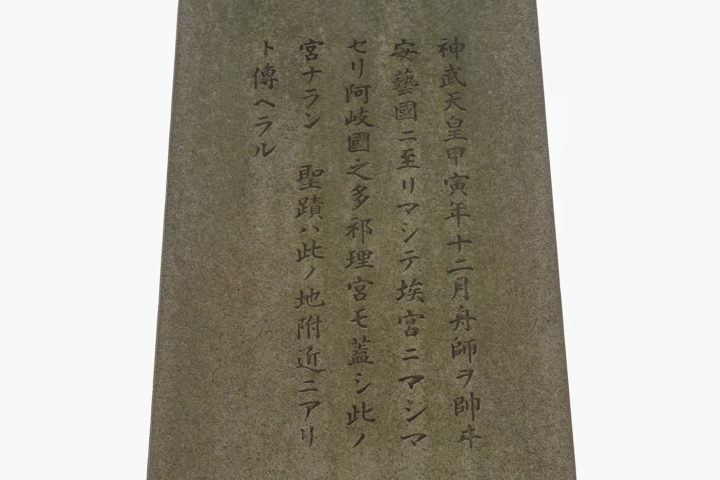 神武天皇甲寅年十二月舟師ヲ帥ヰ
安藝國ニ至リマシテ埃宮ニマシマ
セリ阿岐國之多祁理宮モ蓋シ此ノ
宮ナラン　聖蹟ハ此ノ地附近ニアリ
ト傳ヘラル